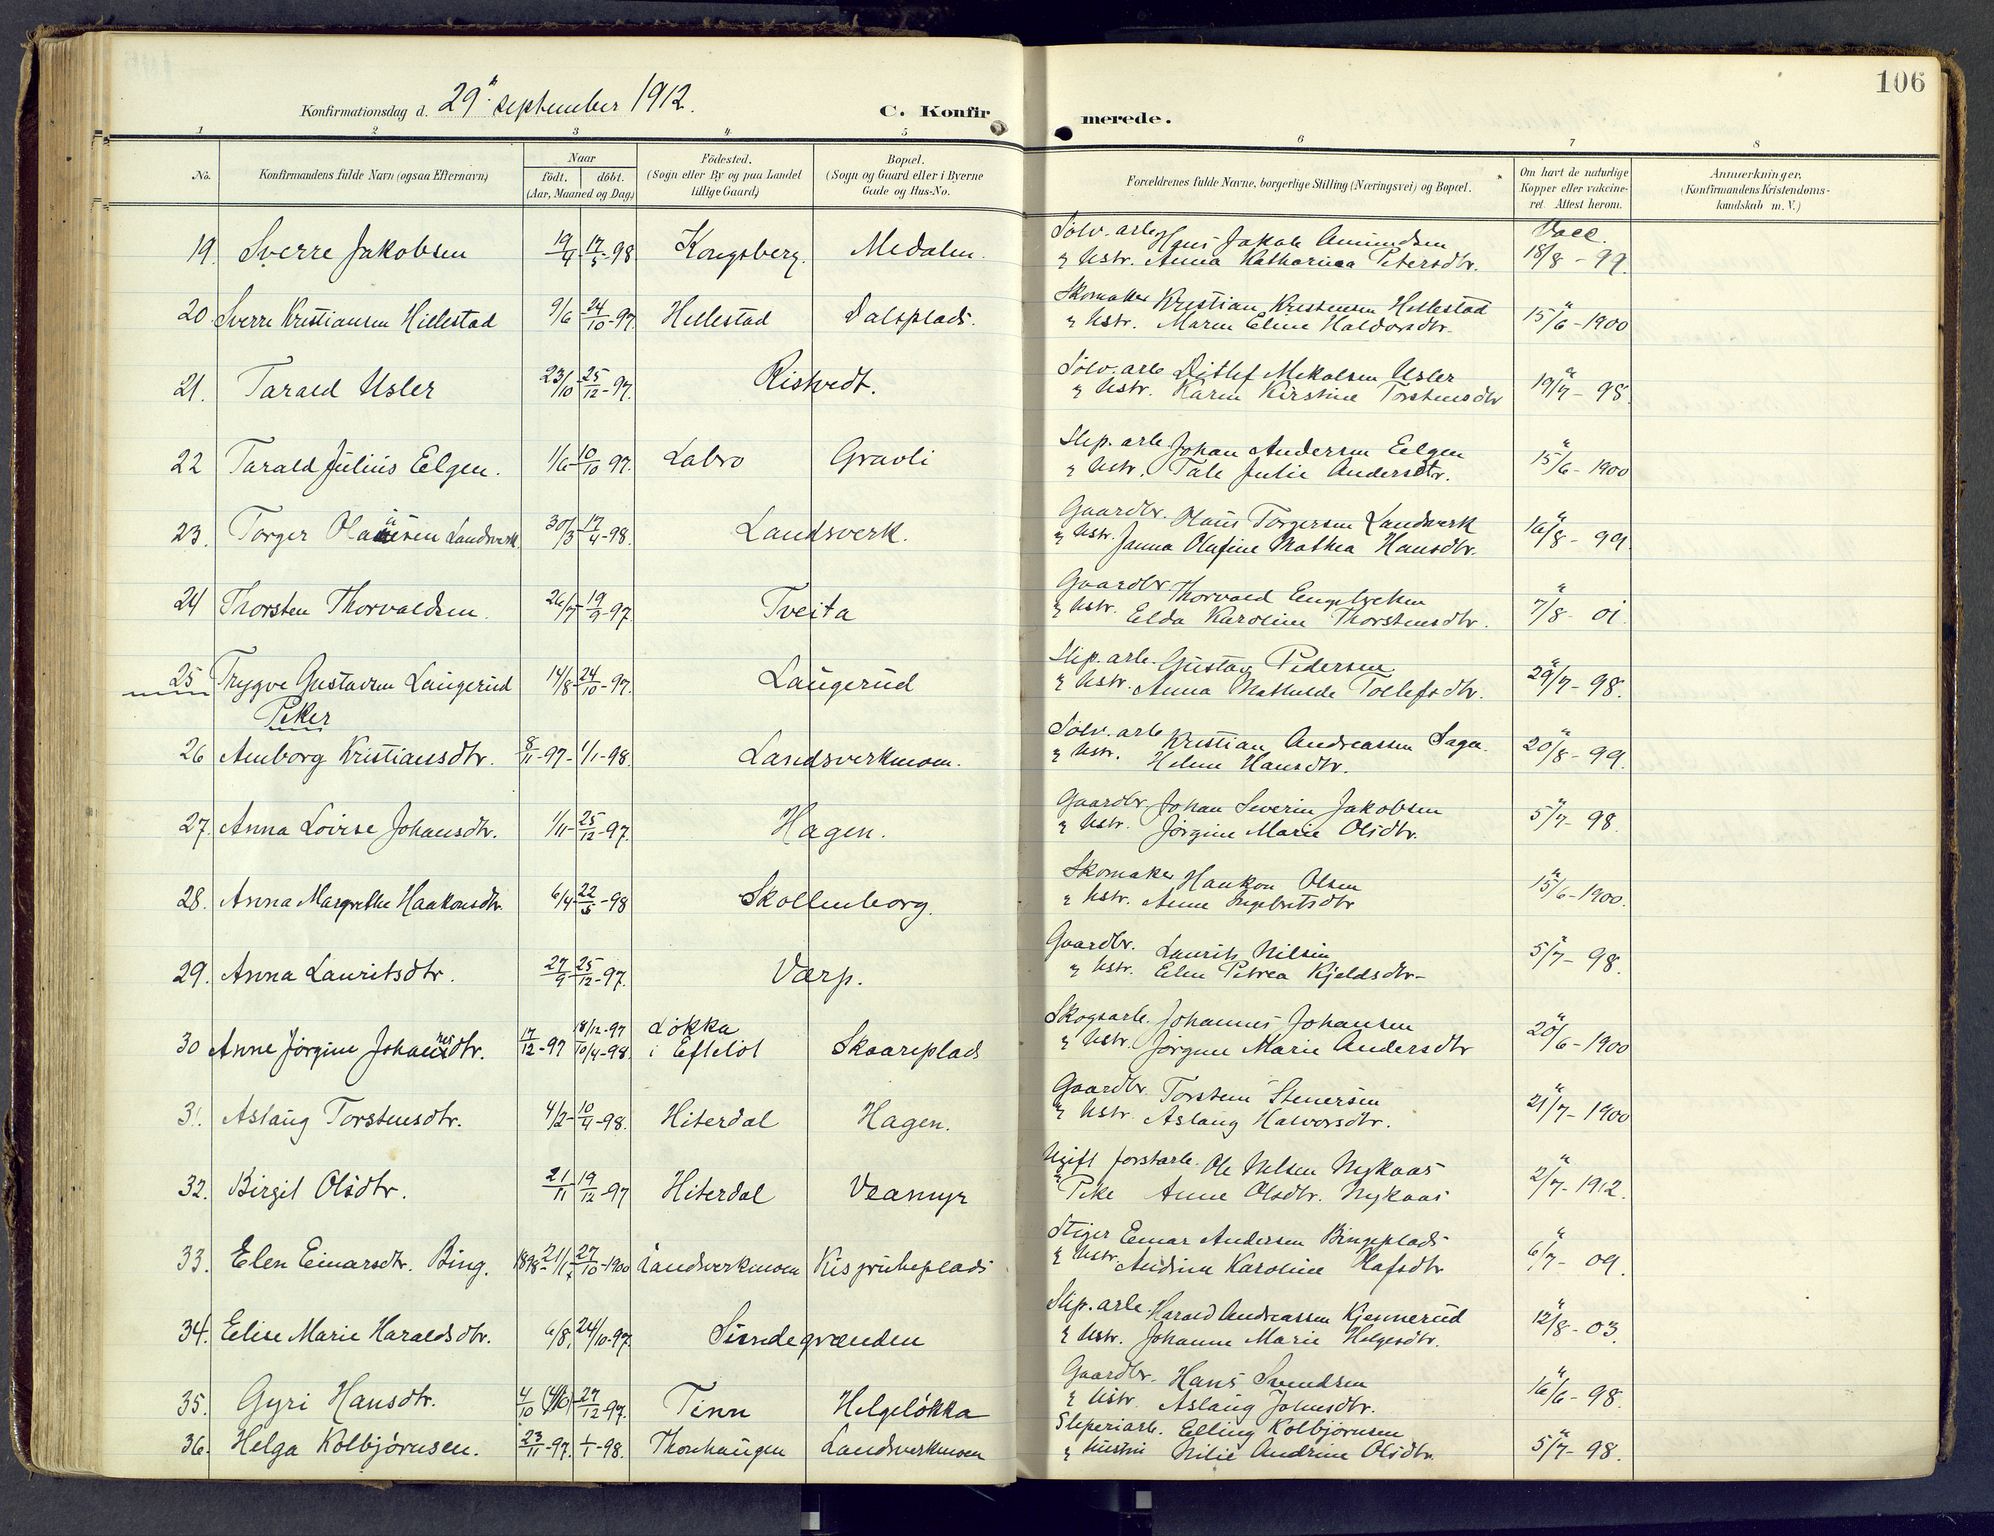 106
Konfirmationsdag d. 29de september 1912.
C. Konfirmerede.
1 2 3 4 5 6 7 8
No.
Konfirmandens fulde Navn (ogsaa Efternavn)
Naar
født. døbt.
(Aar, Maaned og Dag)
Födested.
(Sogn eller By og paa Landet
tillige Gaard)
Bopæl.
(Sogn og Gaard eller i Byerne
Gade og Hus-No.
Forældrenes fulde Navne, borgerlige Stilling (Næringsvei) og Bopæl.
Om havt de naturlige
Kopper eller vakcine-
ret. Attest herom.
Anmærkninger.
(Konfirmandens Kristendoms-
kundskab m. V.)
19. Sverre Jakobsen 19/4 - 17/5-98 Kongsberg. Medalen. Sølv. arb. Hans Jakob Amundsen Vacc.
" Hstr. Anna Katharina Petersdtr. 18/8 - 99.
20. Sverre Kristiansen Hillestad 9/6 - 24/10-97. Hillestad Dalsplads. Skomaker Kristian Kristensen Hillestad
" Hstr. Maren Eline Haldorsdtr. 15/6 - 1900
21. Tarald Usler 23/10 - 25/12-97. Ristvedt. Sølv. arb. Ditlef Mikalsen Usler
" Hstr. Karen Kirstine Torstensdtr 19/7 - 98.
22 Tarald Julius Eelgen. 1/6 - 10/10 97. Labro Gravli Slip. arb. Johan Andersen Eelgen
" Hstr. Tale Julie Andersdtr. 15/6 - 1900
23. Torger Olausen Landsverk. 30/3 - 17/4-98. Landsverk. Gaardbr. Olaus Torgersen Landverk
" Hstr. Janna Olufine Mathea Hansdtr. 16/8 - 99.
24 Thorsten Thorvaldsen. 26/7 - 19/9-97. Tveita Gaardbr Thorvald Engebretsen
" Hstr. Elda Karoline Thorstensdtr. 7/8 - 01.
25 Trygve Gustavsen Laugerud 14/8 - 24/10-97. Laugerud Slip. arb. Gustav Pedersen
" Hstr. Anna Mathilde Tollefsdtr. 29/7 - 98.
Piker
26 Amborg Kristiansdtr. 8/11-97 - 1/1-98. Landsverkmoen. Sølv. arb. Kristian Andreassen Sagen.
" Hstr. Helene Hansdtr. 20/8 - 99.
27. Anna Lovise Johansdtr. 1/11 - 25/12-97. Hagen. Gaardbr. Johan Severin Jakobsen
" Hstr. Jørgine Marie Olsdtr. 5/7 - 98.
28. Anna Margrethe Haakonsdtr. 6/4 - 22/5-98 Skollenborg. Skomaker Haakon Olsen
" Hstr. Anne Ingebritsdtr 15/6 - 1900.
29. Anna Lauritsdtr. 27/9 - 25/12-97. Værp. Gaardbr. Laurits Nilsen
" Hstr. Elen Petrea Kjeldsdtr. 5/7 - 98.
30 Anne Jørgine Johannesdtr. 17/12-97 18/12-97 10/4-98. Løkka i Efteløt Skaareplads Skogsarb. Johannes Johansen
" Hstr. Jørgine Marie Andersdtr 20/6 - 1900
31. Aslaug Torstensdtr. 4/2 - 10/4-98. Hiterdal Hagen. Gaardbr. Torstein Stenersen
" Hstr. Aslaug Halvorsdtr. 21/7 - 1900
32. Birgit Olsdtr. 21/11 - 19/12-97 Hiterdal Veamyr Ugift forstarb. Ole Nilsen Nykaas
" Pike Anne Olsdtr. Nykaas 2/7 - 1912.
33. Elen Einarsdtr. Bing. 1898 - 21/1 - 27/10-1900 Landsverkmoen Kisgrubeplads Stiger Einar Andersen Bingeplads
" Hstr. Andrine Karoline Olafsdtr 6/7 - 09.
34. Elise Marie Haraldsdtr. 6/8. 24/10-97. Sundegrænden Slip. arb. Harald Andreassen Kjennerud
" Hstr. Johanne Marie Helgesdtr. 12/8 - 03.
35. Gyri Hansdtr. 4/10 (4/10) - 27/12-97. Tinn Helgeløkka Gaardbr. Hans Svendsen
" Hstr. Aslaug Johnsdtr. 16/6 - 98.
36. Helga Kolbjørnsen. 23/11-97. 1/1-98. Thonhaugen Landsverkmoen Sliperiarb. Elling Kolbjørnsen
" Hustru Nilie Andrine Olsdtr. 5/7 - 98.